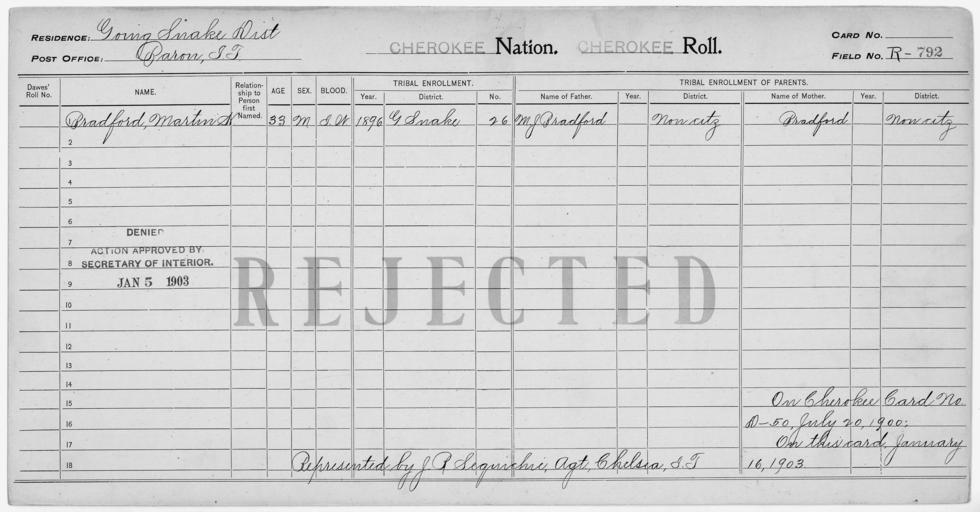 RESIDENCE: Going Snake Dist
POST OFFICE: Baron, I.T.
CHEROKEE Nation. CHEROKEE Roll.
CARD NO.
FIELD NO. R-792
Dawes' Roll No. NAME. Relationship to Person first Named. AGE SEX. BLOOD. TRIBAL ENROLLMENT. TRIBAL ENROLLMENT OF PARENTS.
Year. District. No. Name of Father. Year. District. Name of Mother. Year. District.
Bradford, Martin 33 M I.W. 1896 G Snake 26 M J Bradford Non citz Bradford Non citz
2
3
4
5
6
DENIED
7
ACTION APPROVED BY
8 SECRETARY OF INTERIOR.
9 JAN 5 1903
REJECTED
10
11
12
13
14
15 On Cherokee Card No.
16 D-50, July 20, 1900:
17 On this card, January
18 Represented by J R Sequichie, Agt, Chelsea, I.T. 16, 1903